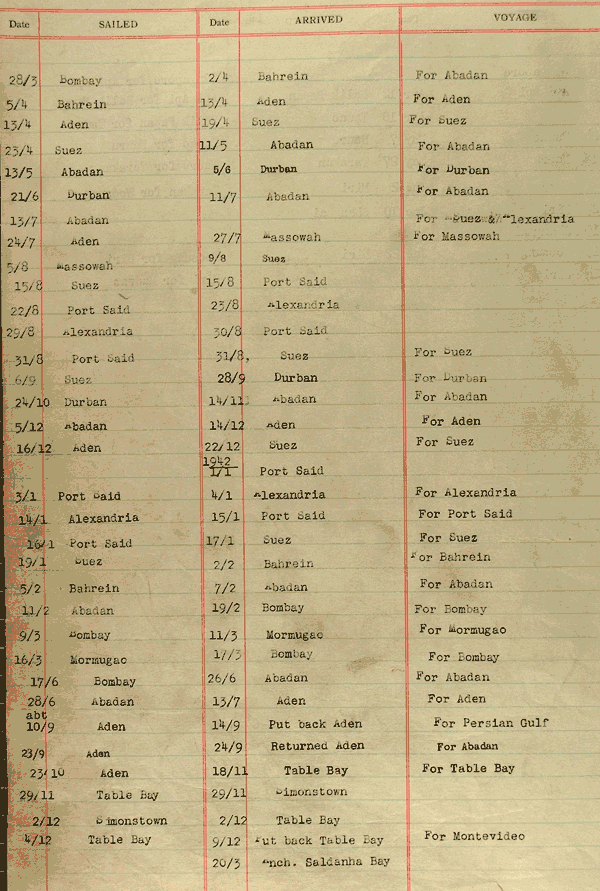 Date SAILED Date ARRIVED VOYAGE
28/3 Bombay 2/4 Bahrein For Abadan
5/4 Bahrein 13/4 Aden For Aden
13/4 Aden 19/4 Suez For Suez
23/4 Suez 11/5 Abadan For Abadan
13/5 Abadan 5/6 Durban For Durban
21/6 Durban 11/7 Abadan For Abadan
13/7 Abadan For Suez & Alexandria
24/7 Aden 27/7 Massowah For Massowah
5/8 Massowah 9/8 Suez
15/8 Suez 15/8 Port Said
22/8 Port Said 23/8 Alexandria
29/8 Alexandria 30/8 Port Said
31/8 Port Said 31/8, Suez For Suez
6/9 Suez 28/9 Durban For Durban
24/10 Durban 14/11 Abadan For Abadan
5/12 Abadan 14/12 Aden For Aden
16/12 Aden 22/12 Suez For Suez
1942
1/1 Port Said
3/1 Port Said 4/1 Alexandria For Alexandria
14/1 Alexandria 15/1 Port Said For Port Said
16/1 Port Said 17/1 Suez For Suez
19/1 Suez 2/2 Bahrein For Bahrein
5/2 Bahrein 7/2 Abadan For Abadan
11/2 Abadan 19/2 Bombay For Bombay
9/3 Bombay 11/3 Mormugao For Mormugao
16/3 Mormugao 17/3 Bombay For Bombay
17/6 Bombay 26/6 Abadan For Abadan
28/6 Abadan 13/7 Aden For Aden
abt
10/9 Aden 14/9 Put back Aden For Persian Gulf
23/9 Aden 24/9 Returned Aden For Abadan
23/10 Aden 18/11 Table Bay For Table Bay
29/11 Table Bay 29/11 Simonstown
2/12 Simonstown 2/12 Table Bay
4/12 Table Bay 9/12 Put back Table Bay For Montevideo
20/3 Anch. Saldanha Bay